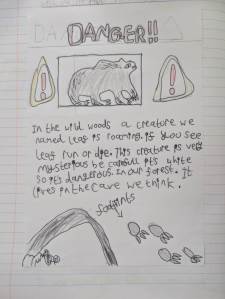 DANGER!!
In the wild woods a creature we
named leaf is roaming. if you see
leaf run or die. This creature is very
mysterious be carfull it's white
so it's dangerous. In our forest. It
lives in the cave we think.
footprints